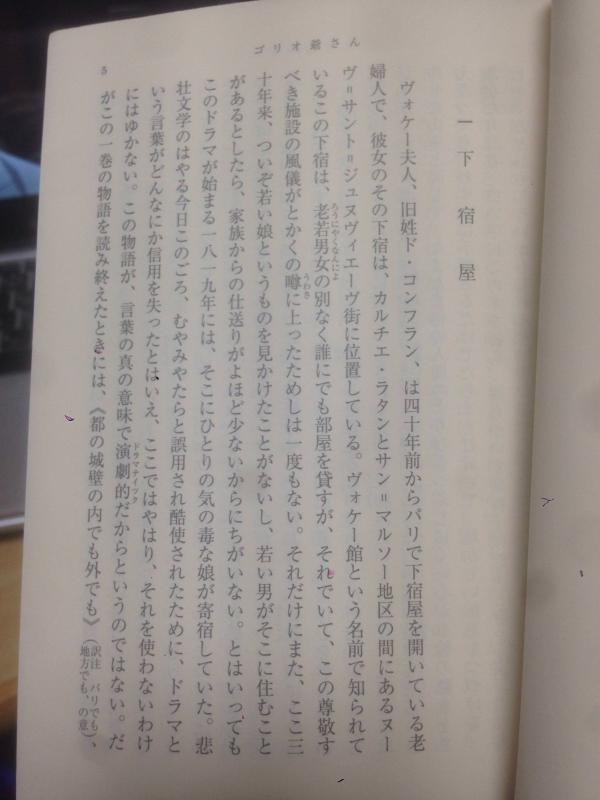 ゴリオ爺さん
5
一　下宿屋
ヴォケー夫人、旧姓ド・コンフラン、は四十年前からパリで下宿屋を開いている老
婦人で、彼女のその下宿は、カルチエ・ラタンとサン＝マルソー地区の間にあるヌー
ヴ＝サント＝ジュヌヴィエーヴ街に位置している。ヴォケー館という名前で知られて
いるこの下宿は、老若男女の別なく誰にでも部屋を貸すが、それでいて、この尊敬す
べき施設の風儀がとかくの噂に上ったためしは一度もない。それだけにまた、ここ三
十年来、ついぞ若い娘というものを見かけたことがないし、若い男がそこに住むこと
があるとしたら、家族からの仕送りがよほど少ないからにちがいない。とはいっても
このドラマが始まる一八一九年には、そこにひとりの気の毒な娘が寄宿していた。悲
壮文学のはやる今日このごろ、むやみやたらと誤用され酷使されたために、ドラマと
いう言葉がどんなにか信用を失ったとはいえ、ここではやはり、それを使わないわけ
にはゆかない。この物語が、言葉の真の意味で演劇的だからというのではない。だ
がこの一巻の物語を読み終えたときには、《都の城壁の内でも外でも》（訳注　パリでも地方でも、の意）、
ろうにゃくなんにょ
うわさ
ドラマティック